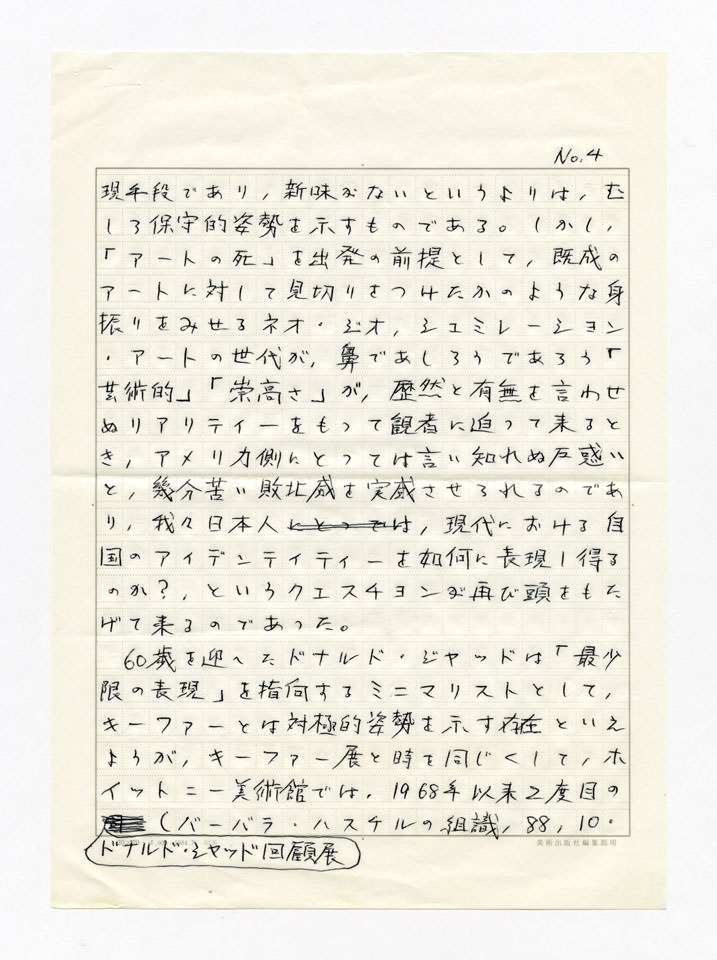 No.4
現手段であり,新味がないというよりは,む
しろ保守的姿勢を示すものである。しかし,
「アートの死」を出発の前提として,既成の
アートに対して見切りをつけたかのような身
振りをみせるネオ・ジオ,シュミレーション
・アートの世代が,鼻であしろうであろう「
芸術的」「崇高さ」が,歴然と有無を言わせ
ぬリアリティーをもって観者に迫って来ると
き,アメリカ側にとっては言い知れぬ戸惑い
と,幾分苦い敗北感を実感させられるのであ
り,我々日本人にとっては,現代における自
国のアイデンティティーを如何に表現し得る
のか?,というクエスチョンが再び頭をもた
げて来るのであった。
60歳を迎へたドナルド・ジャッドは「最少
限の表現」を指向するミニマリストとして,
キーファーとは対極的姿勢を示す存在といえ
ようが,キーファー展と時を同じくして,ホ
イットニー美術館では,1968年以来2度目の
(バーバラ・ハスケルの組識,88,10・
ドナルド・ジャッド回顧展
美術出版社編集部用